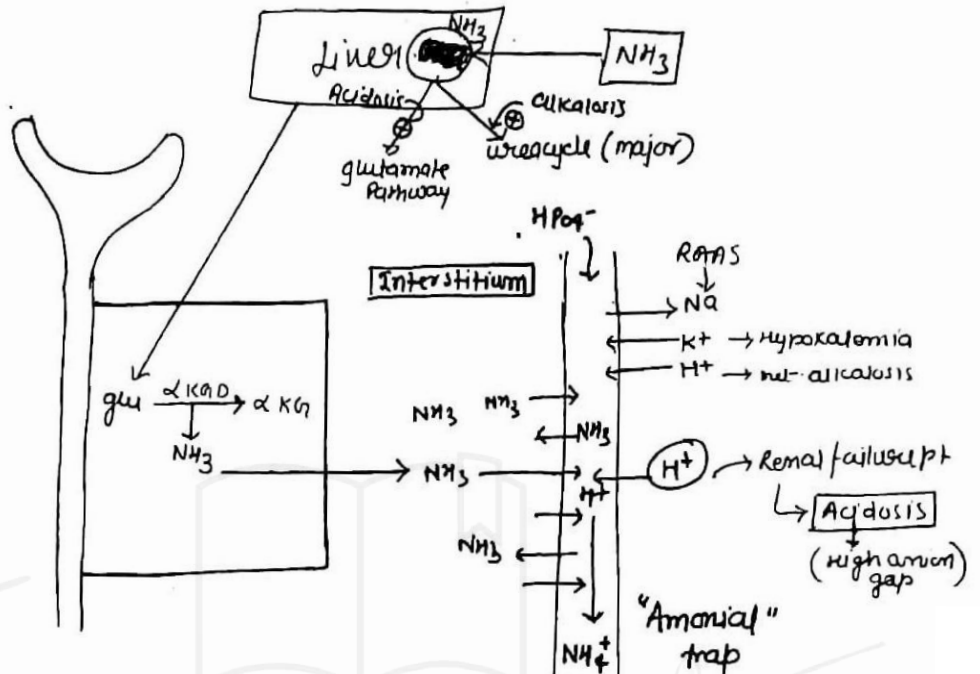 NH3
Liver
NH3
Acidosis
⊕
alkalosis
⊕
glutamate
Pathway
ureacycle (major)
HPO4-
Interstitium
RAAS
Na
K+ → Hypokalemia
H+ → met. alkalosis
glu αKGD → αKG
NH3
NH3 NH3
NH3
NH3
H+
H+
Renal failure pt
Acidosis
(High anion
gap)
NH3
"Amonial"
trap
NH4+